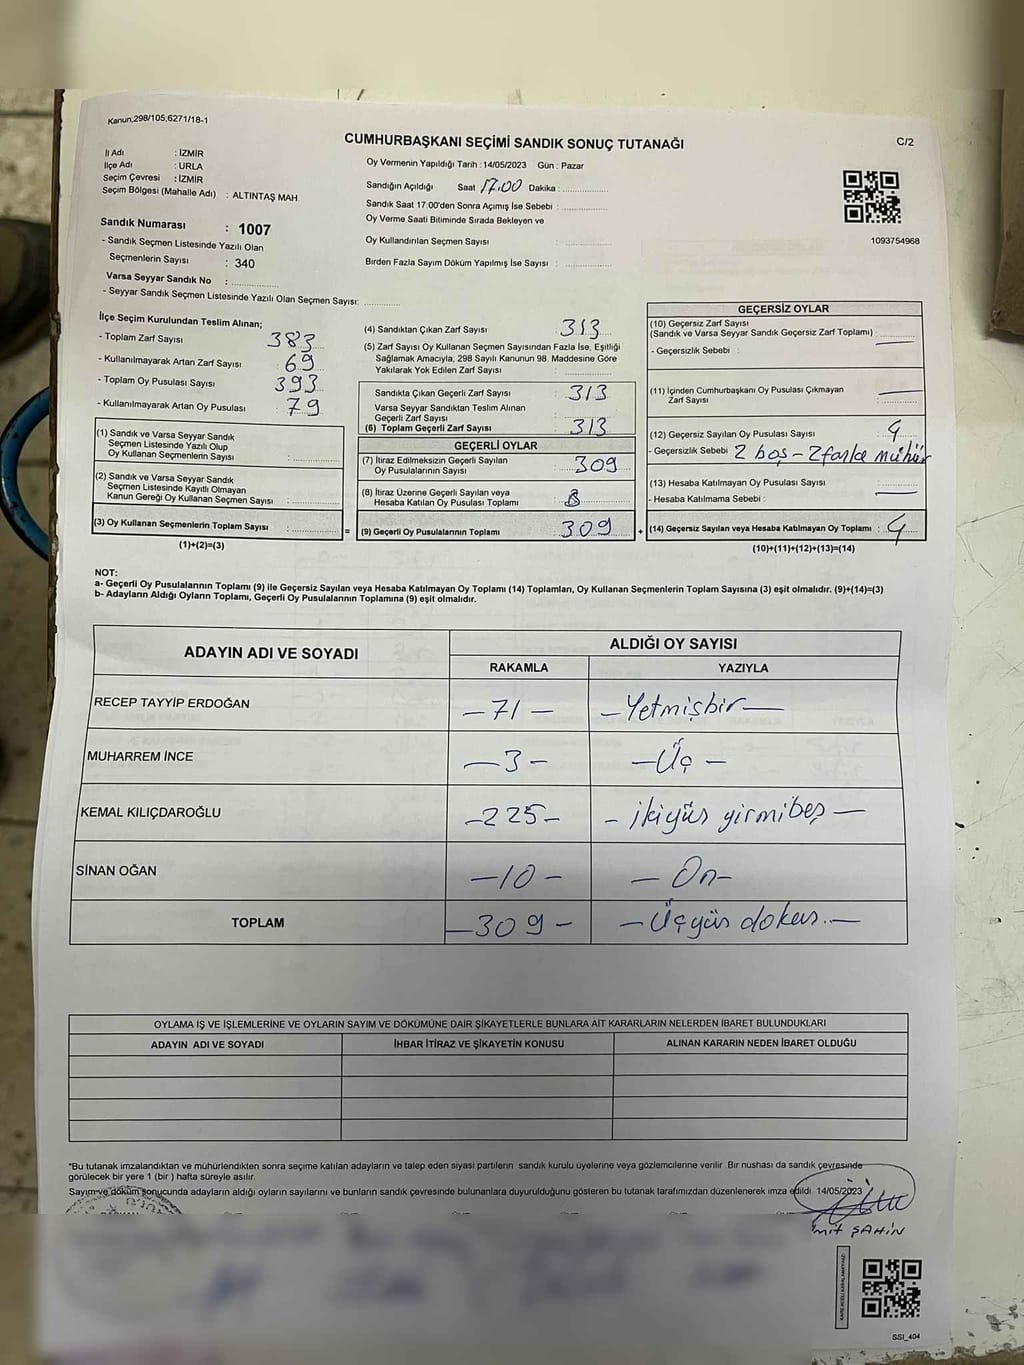 Kanun;298/105;6271/18-1
CUMHURBAŞKANI SEÇİMİ SANDIK SONUÇ TUTANAĞI
C/2
İl Adı : İZMİR
İlçe Adı : URLA
Seçim Çevresi : İZMİR
Seçim Bölgesi (Mahalle Adı) : ALTINTAŞ MAH.
Oy Vermenin Yapıldığı Tarih : 14/05/2023 Gün : Pazar
Sandığın Açıldığı Saat 17.00 Dakika :
Sandık Saat 17:00'den Sonra Açımış İse Sebebi :
Oy Verme Saati Bitiminde Sırada Bekleyen ve
Oy Kullandırılan Seçmen Sayısı :
Birden Fazla Sayım Döküm Yapılmış İse Sayısı :
1093754968
Sandık Numarası : 1007
- Sandık Seçmen Listesinde Yazılı Olan
Seçmenlerin Sayısı : 340
Varsa Seyyar Sandık No :
- Seyyar Sandık Seçmen Listesinde Yazılı Olan Seçmen Sayısı:
İlçe Seçim Kurulundan Teslim Alınan;
- Toplam Zarf Sayısı 383
- Kullanılmayarak Artan Zarf Sayısı 69
- Toplam Oy Pusulası Sayısı 393
- Kullanılmayarak Artan Oy Pusulası 79
(1) Sandık ve Varsa Seyyar Sandık
Seçmen Listesinde Yazılı Olup
Oy Kullanan Seçmenlerin Sayısı :
(2) Sandık ve Varsa Seyyar Sandık
Seçmen Listesinde Kayıtlı Olmayan
Kanun Gereği Oy Kullanan Seçmen Sayısı :
(3) Oy Kullanan Seçmenlerin Toplam Sayısı : =
(1)+(2)=(3)
(4) Sandıktan Çıkan Zarf Sayısı 313
(5) Zarf Sayısı Oy Kullanan Seçmen Sayısından Fazla İse, Eşitliği
Sağlamak Amacıyla, 298 Sayılı Kanunun 98. Maddesine Göre
Yakılarak Yok Edilen Zarf Sayısı :
Sandıkta Çıkan Geçerli Zarf Sayısı 313
Varsa Seyyar Sandıktan Teslim Alınan
Geçerli Zarf Sayısı
(6) Toplam Geçerli Zarf Sayısı 313
GEÇERLİ OYLAR
(7) İtiraz Edilmeksizin Geçerli Sayılan
Oy Pusulalarının Sayısı 309
(8) İtiraz Üzerine Geçerli Sayılan veya
Hesaba Katılan Oy Pusulası Toplamı :
(9) Geçerli Oy Pusulalarının Toplamı 309 +
GEÇERSİZ OYLAR
(10) Geçersiz Zarf Sayısı
(Sandık ve Varsa Seyyar Sandık Geçersiz Zarf Toplamı) : —
- Geçersizlik Sebebi :
(11) İçinden Cumhurbaşkanı Oy Pusulası Çıkmayan
Zarf Sayısı : —
(12) Geçersiz Sayılan Oy Pusulası Sayısı : 4
- Geçersizlik Sebebi 2 boş - 2 fazla mühür
(13) Hesaba Katılmayan Oy Pusulası Sayısı : —
- Hesaba Katılmama Sebebi :
(14) Geçersiz Sayılan veya Hesaba Katılmayan Oy Toplamı : 4
(10)+(11)+(12)+(13)=(14)
NOT:
a- Geçerli Oy Pusulalarının Toplamı (9) ile Geçersiz Sayılan veya Hesaba Katılmayan Oy Toplamı (14) Toplamları, Oy Kullanan Seçmenlerin Toplam Sayısına (3) eşit olmalıdır. (9)+(14)=(3)
b- Adayların Aldığı Oyların Toplamı, Geçerli Oy Pusulalarının Toplamına (9) eşit olmalıdır.
ADAYIN ADI VE SOYADI ALDIĞI OY SAYISI
RAKAMLA YAZIYLA
RECEP TAYYİP ERDOĞAN —71— —Yetmişbir—
MUHARREM İNCE —3— —Üç—
KEMAL KILIÇDAROĞLU —225— —ikiyüs yirmibeş—
SİNAN OĞAN —10— —On—
TOPLAM —309— —Üçyüs dokuz.—
OYLAMA İŞ VE İŞLEMLERİNE VE OYLARIN SAYIM VE DÖKÜMÜNE DAİR ŞİKAYETLERLE BUNLARA AİT KARARLARIN NELERDEN İBARET BULUNDUKLARI
ADAYIN ADI VE SOYADI İHBAR İTİRAZ VE ŞİKAYETİN KONUSU ALINAN KARARIN NEDEN İBARET OLDUĞU
*Bu tutanak imzalandıktan ve mühürlendikten sonra seçime katılan adayların ve talep eden siyasi partilerin sandık kurulu üyelerine veya gözlemcilerine verilir .Bir nüshası da sandık çevresinde
görülecek bir yere 1 (bir ) hafta süreyle asılır.
Sayım ve döküm sonucunda adayların aldığı oyların sayılarını ve bunların sandık çevresinde bulunanlara duyurulduğunu gösteren bu tutanak tarafımızdan düzenlenerek imza edildi. 14/05/2023
ŞAHİN
SSİ_404